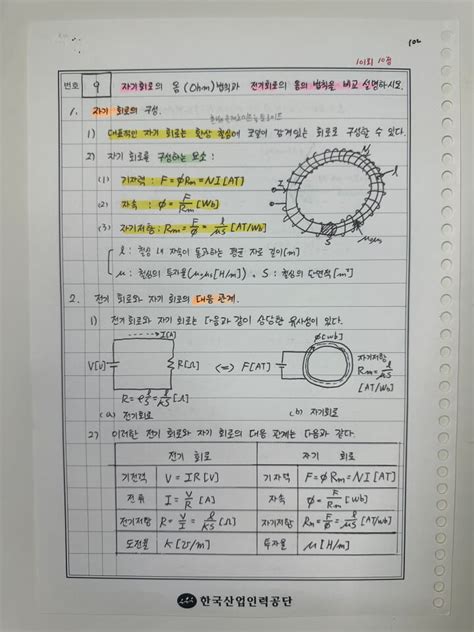 102
101회 10점
번호 9 자기회로의 옴(Ohm)법칙과 전기회로의 옴의 법칙을 비교 설명하시오.
1. 자기 회로의 구성.
1) 대표적인 자기 회로는 환상 철심에 코일이 감겨있는 회로로 구성할 수 있다.
2) 자기 회로를 구성하는 요소:
(1) 기자력 : F = ϕRm = NI [AT]
(2) 자속 : ϕ = F/Rm [Wb]
(3) 자기저항 : Rm = F/ϕ = l/μS [AT/Wb]
l : 철심 내 자속이 통과하는 평균 자로 길이[m]
μ : 철심의 투자율(μ₀μs[H/m]), S : 철심의 단면적[m²]
I
N
l
S
μ₀μs
2. 전기 회로와 자기 회로의 대응 관계.
1) 전기 회로와 자기 회로는 다음과 같이 상당한 유사성이 있다.
I[A]
V[V]
R[Ω]
R = ρ l/S = l/kS [Ω]
(a) 전기회로
<=>
F[AT]
ϕ[Wb]
자기저항
Rm = l/μS
[AT/Wb]
(b) 자기회로
2) 이러한 전기 회로와 자기 회로의 대응 관계는 다음과 같다.
전기 회로 자기 회로
기전력 V = IR [V] 기자력 F = ϕRm = NI [AT]
전류 I = V/R [A] 자속 ϕ = F/Rm [Wb]
전기저항 R = V/I = l/kS [Ω] 자기저항 Rm = F/ϕ = l/μS [AT/Wb]
도전율 k [℧/m] 투자율 μ [H/m]
한국산업인력공단